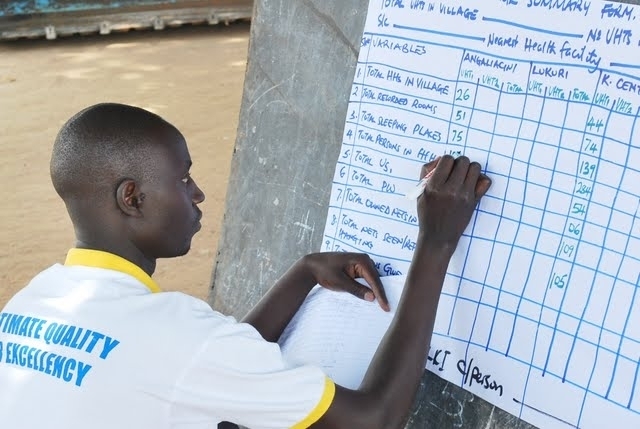 SUMMARY FORM
TOTAL VHTS IN VILLAGE NO VHTS
S/C Nearest Health facility
VARIABLES ANGALIACINI LUKURI K. CENT
VHT1 VHT2 Total VHT1 VHT2 Total VHT1 VHT2
1 TOTAL HHs IN VILLAGE 26 44
2 TOTAL RECORDED ROOMS 51 74
3. TOTAL SLEEPING PLACES 75 139
4 TOTAL PERSONS IN 224
5 TOTAL U5, 54
6 TOTAL PW 06
7. TOTAL OWNED NETS 109
8. TOTAL NETS SEEN 105
HANGING
9.
c/person
TIMATE QUALITY
EXCELLENCY